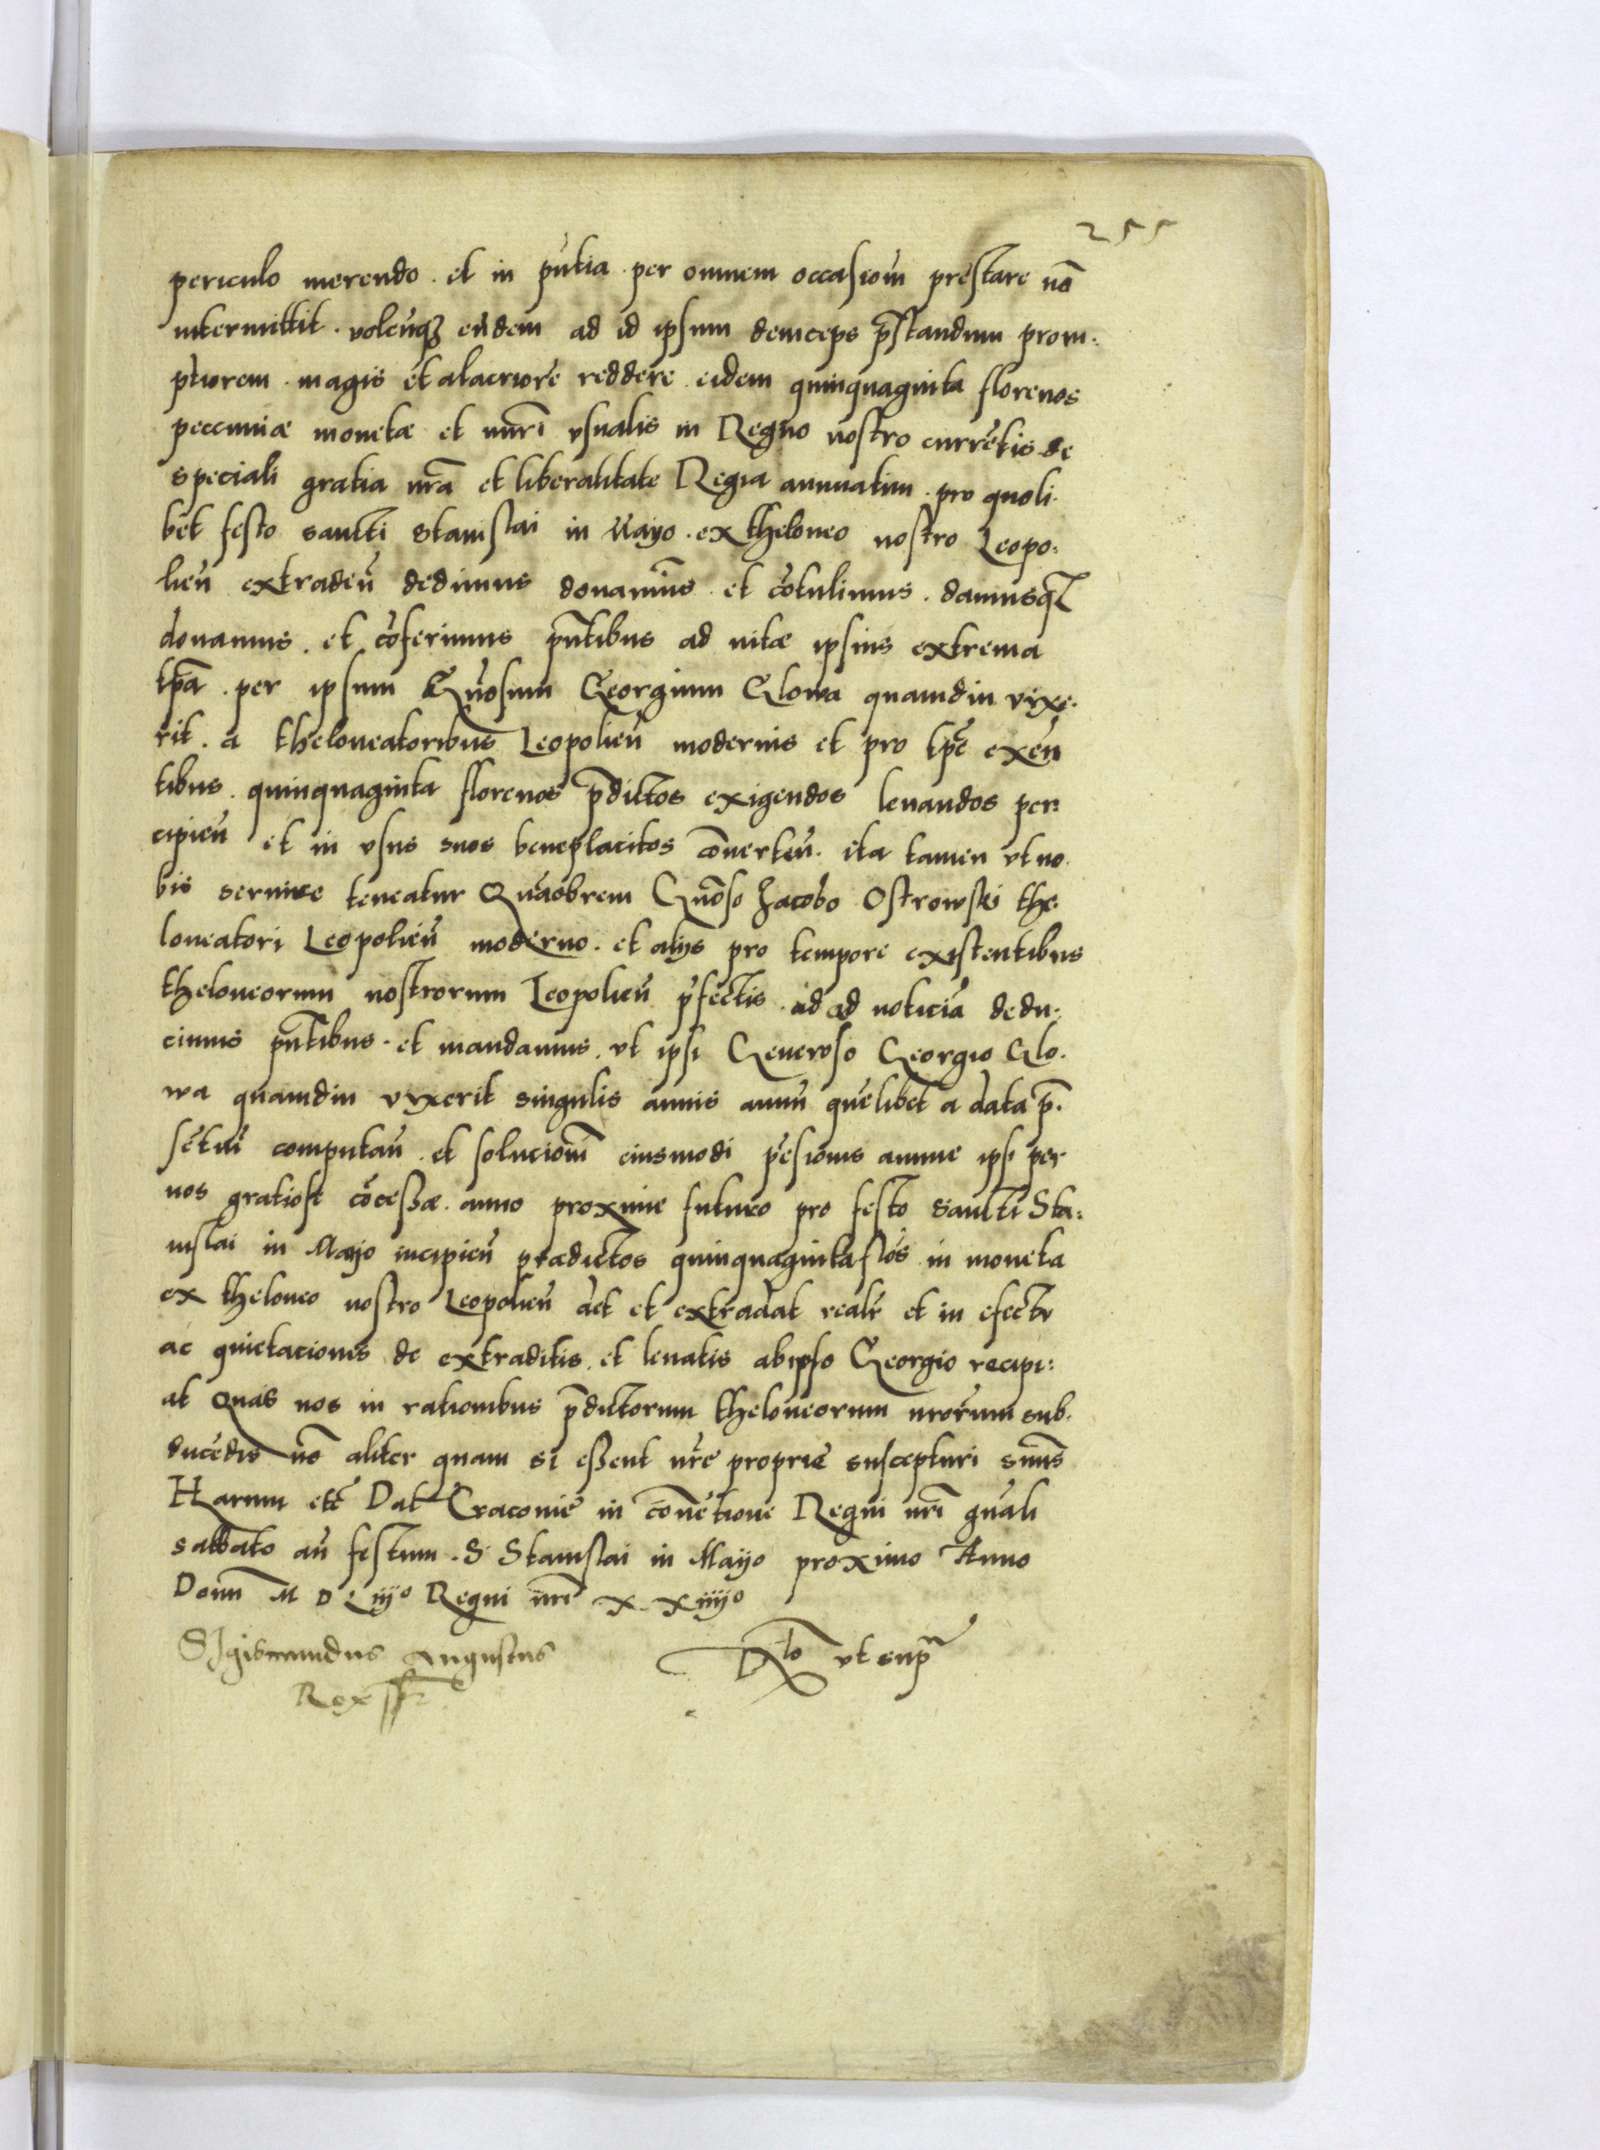 255
periculo merendo. et in pn̄tia. per omnem occasiōm prestare nō
intermittit. volen̄q3 eūdem ad id ipsum deinceps p̄standum prom:
ptiorem. magis et alacriorē reddere. eidem quinquaginta florenos
peccuniæ monetæ et nūri vsualis in Regno nostro currētis de
speciali gratia nrā et liberalitate Regia annuatim. pro quoli.
bet festo sancti Stanislai in Mayo. ex theloneo nostro Leopo:
lien̄ extraden̄ dedimus donauim̄s. et cōtulimus. damusq3
donamus. et cōferimus pn̄tibus ad uitæ ipsius extrema
tpa. per ipsum Gn̄osum Georgium Glowa quamdiu vixe.
rit. a theloneatoribus Leopolien̄ modernis et pro tpē exēn
tibus. quinquaginta florenos p̄dictos exigendos leuandos per:
cipien̄ et in vsus suos beneplacitos cōuerten̄. ita tamen vt no.
bis seruire teneatur Quāobrem Gn̄oso Jacobo Ostrowski the.
loneatori Leopolien̄ moderno. et alijs pro tempore existentibus
theloneorum nostrorum Leopolien̄ p̄fectis. id ad noticiā dedu:
cimus pn̄tibus. et mandamus. vt ipsi Generoso Georgio Glo.
wa quamdiu vixerit singulis annis annū quēlibet a data p̄.
sētiū computan̄. et soluciōm eiusmodi pēsionis annue ipsi per
nos gratiose cōcessæ. anno proxime futuro pro festo Sancti Sta:
nislai in Mayo incipien̄ prædictos quinquaginta flōs in moneta
ex theloneo nostro Leopolien̄ det et extradat realr̄ et in efectu
ac quietaciones de extraditis. et leuatis ab ipso Georgio recipi:
at Quas nos in rationibus p̄dictorum theloneorum nrōrum sub.
ducēdis nō aliter quam si essent nrē proprie suscepturi sum̄s
Harum etc̄ Dat Cracouiē in cōuētione Regni nrī gn̄ali
sabbato an̄ festum. S. Stanislai in Mayo proximo Anno
Domī M D Liijo Regni nrī X Xiiijo
Sigismundus Augustus
Rex sst
Rlo vt supr̄